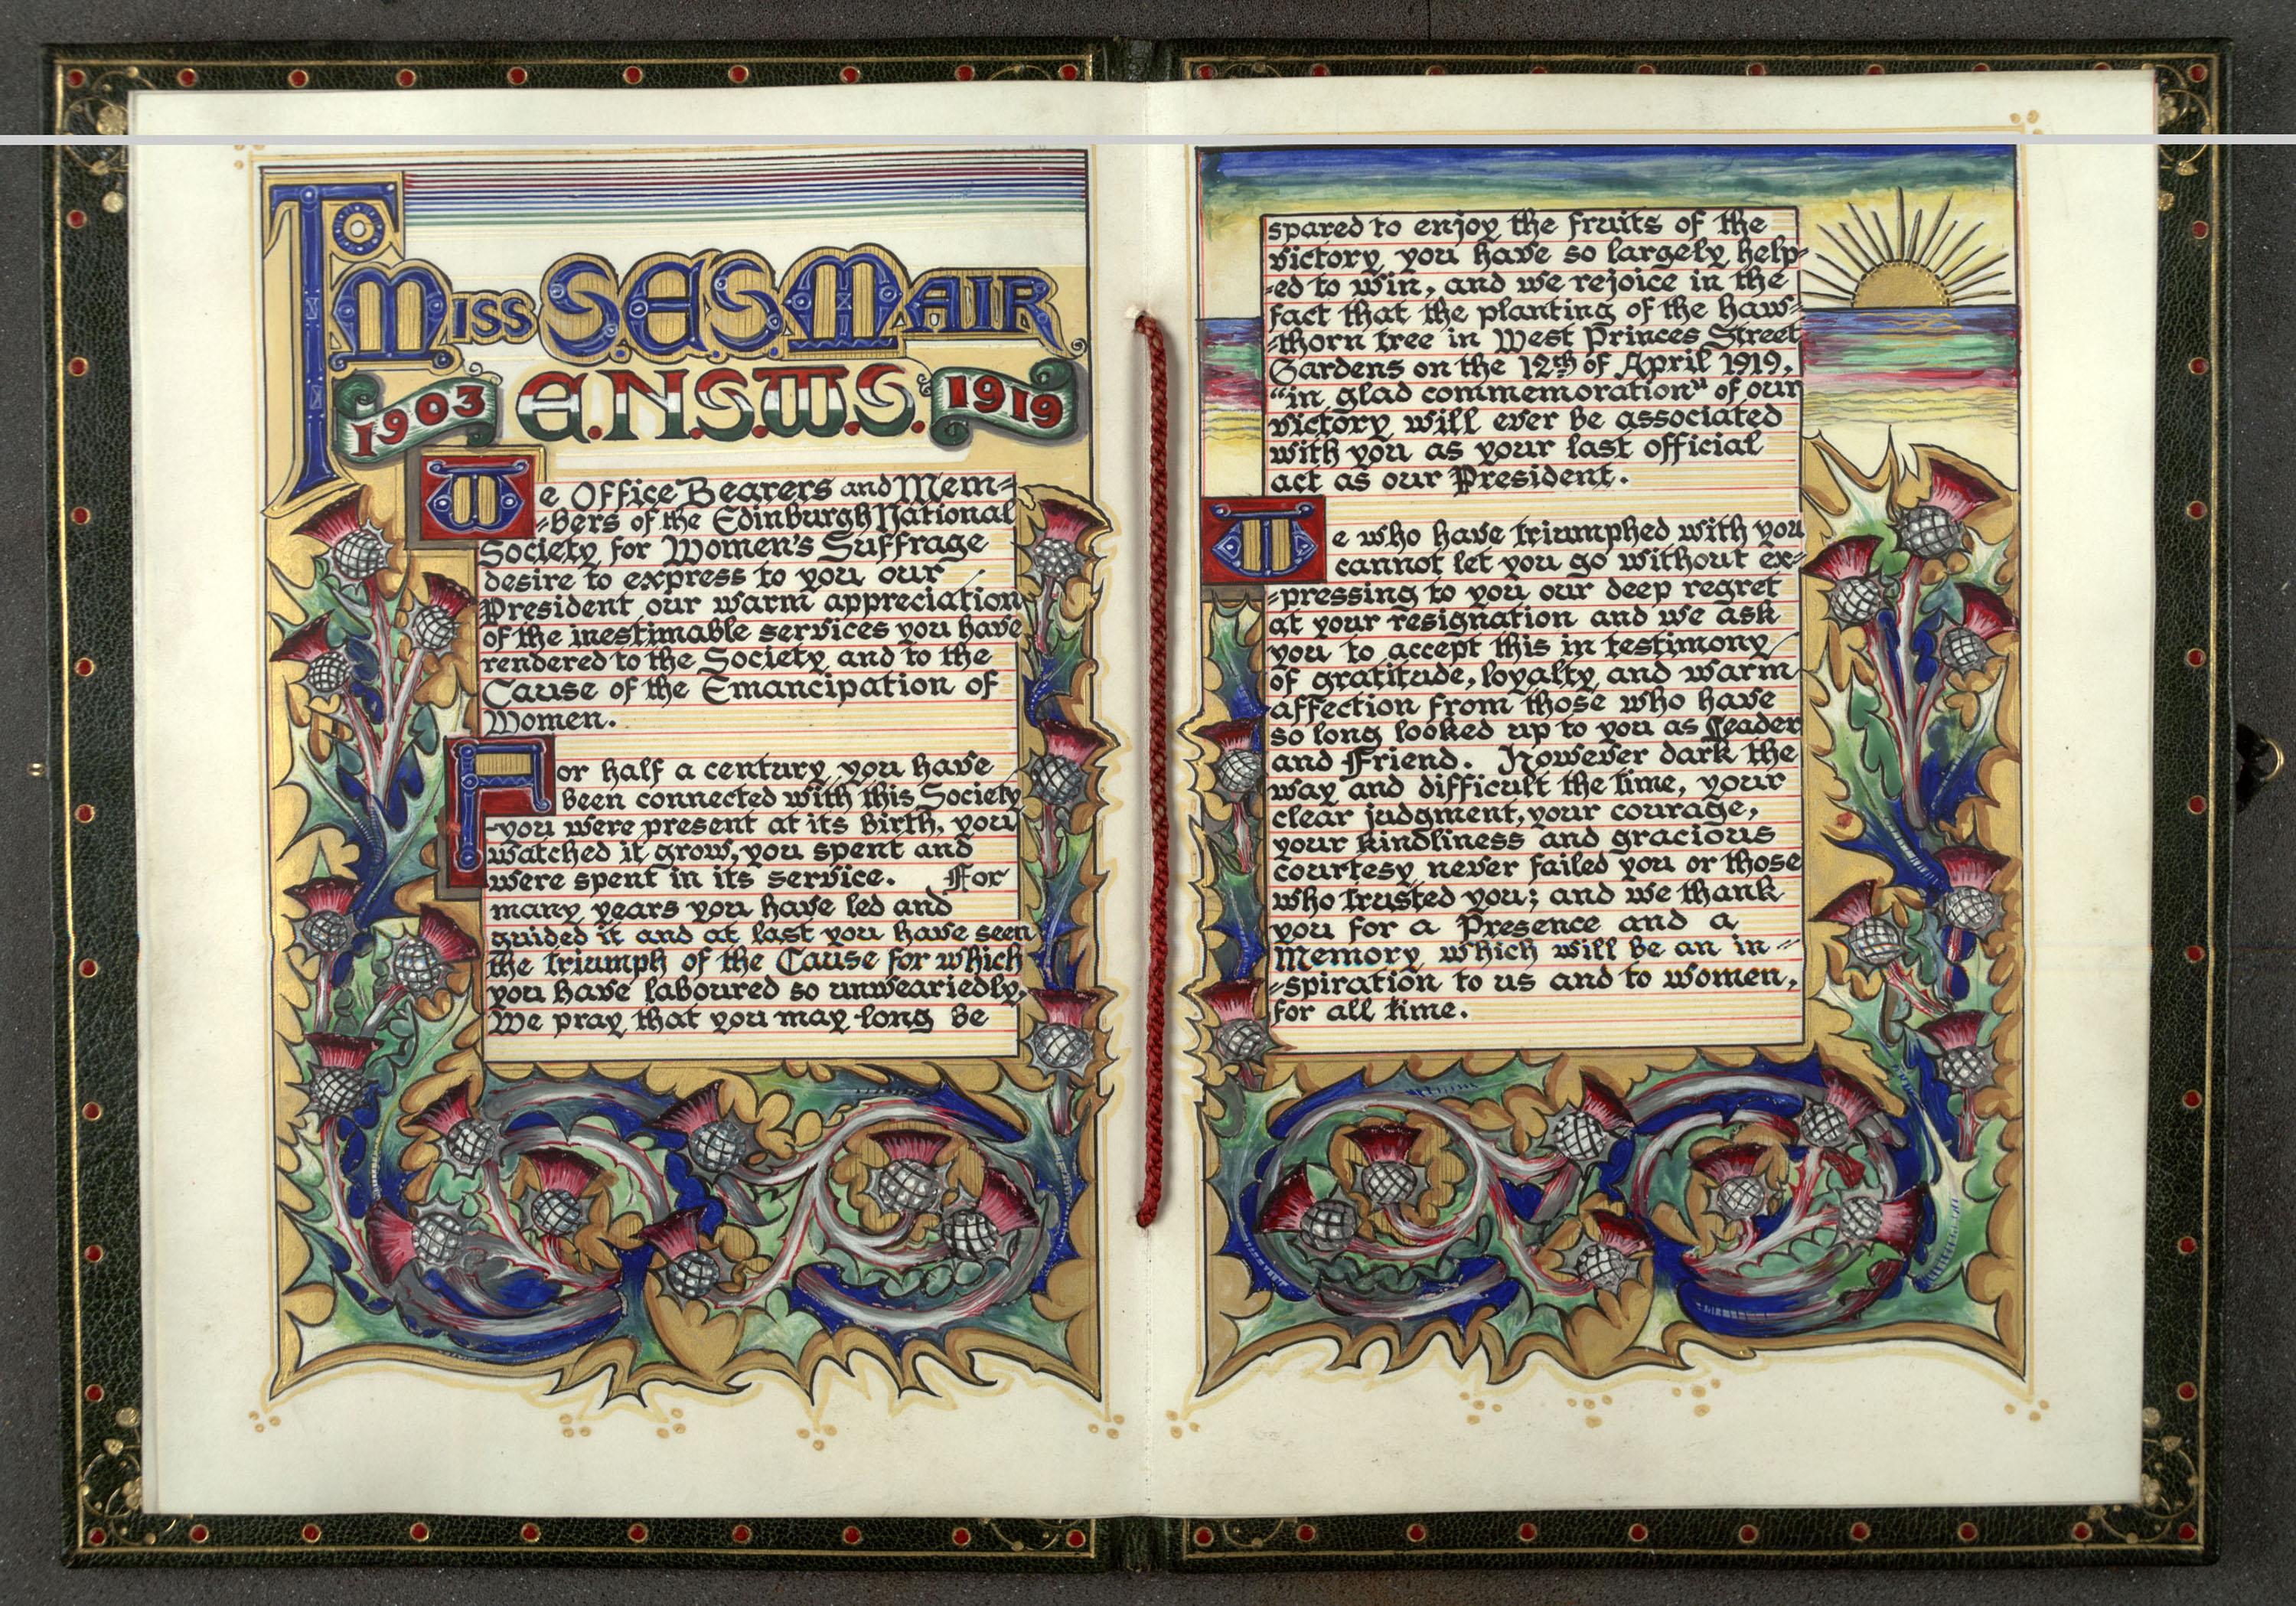 To
Miss S.E.S. Mair
1903 E.N.S.W.S. 1919
We Office Bearers and Mem=
=bers of the Edinburgh National
Society for Women's Suffrage
desire to express to you our
President our warm appreciation
of the inestimable services you have
rendered to the Society and to the
Cause of the Emancipation of
Women.
For half a century you have
been connected with this Society
-you were present at its birth, you
watched it grow, you spent and
were spent in its service. For
many years you have led and
guided it and at last you have seen
the triumph of the Cause for which
you have laboured so unweariedly.
We pray that you may long be
spared to enjoy the fruits of the
victory you have so largely help=
=ed to win, and we rejoice in the
fact that the planting of the haw=
=thorn tree in West Princes Street
Gardens on the 12th of April 1919,
"in glad commemoration" of our
victory will ever be associated
with you as your last official
act as our President.
We who have triumphed with you
cannot let you go without ex=
=pressing to you our deep regret
at your resignation and we ask
you to accept this in testimony
of gratitude, loyalty and warm
affection from those who have
so long looked up to you as Leader
and Friend. However dark the
way and difficult the time, your
clear judgment, your courage,
your kindliness and gracious
courtesy never failed you or those
who trusted you; and we thank
you for a Presence and a
Memory which will be an in=
=spiration to us and to women,
for all time.